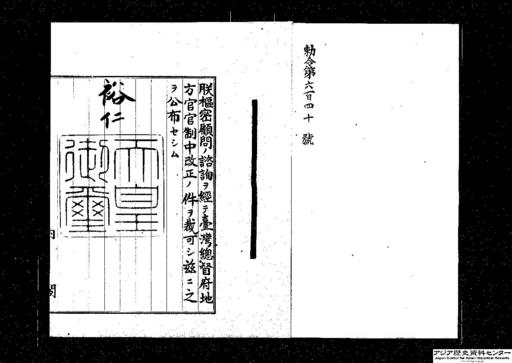 勅令第六百四十號
朕樞密顧問ノ諮詢ヲ經テ臺灣總督府地
方官官制中改正ノ件ヲ裁可シ茲ニ之
ヲ公布セシム
裕仁
天皇
御璽
内閣
アジア歴史資料センター
Japan Center for Asian Historical Records